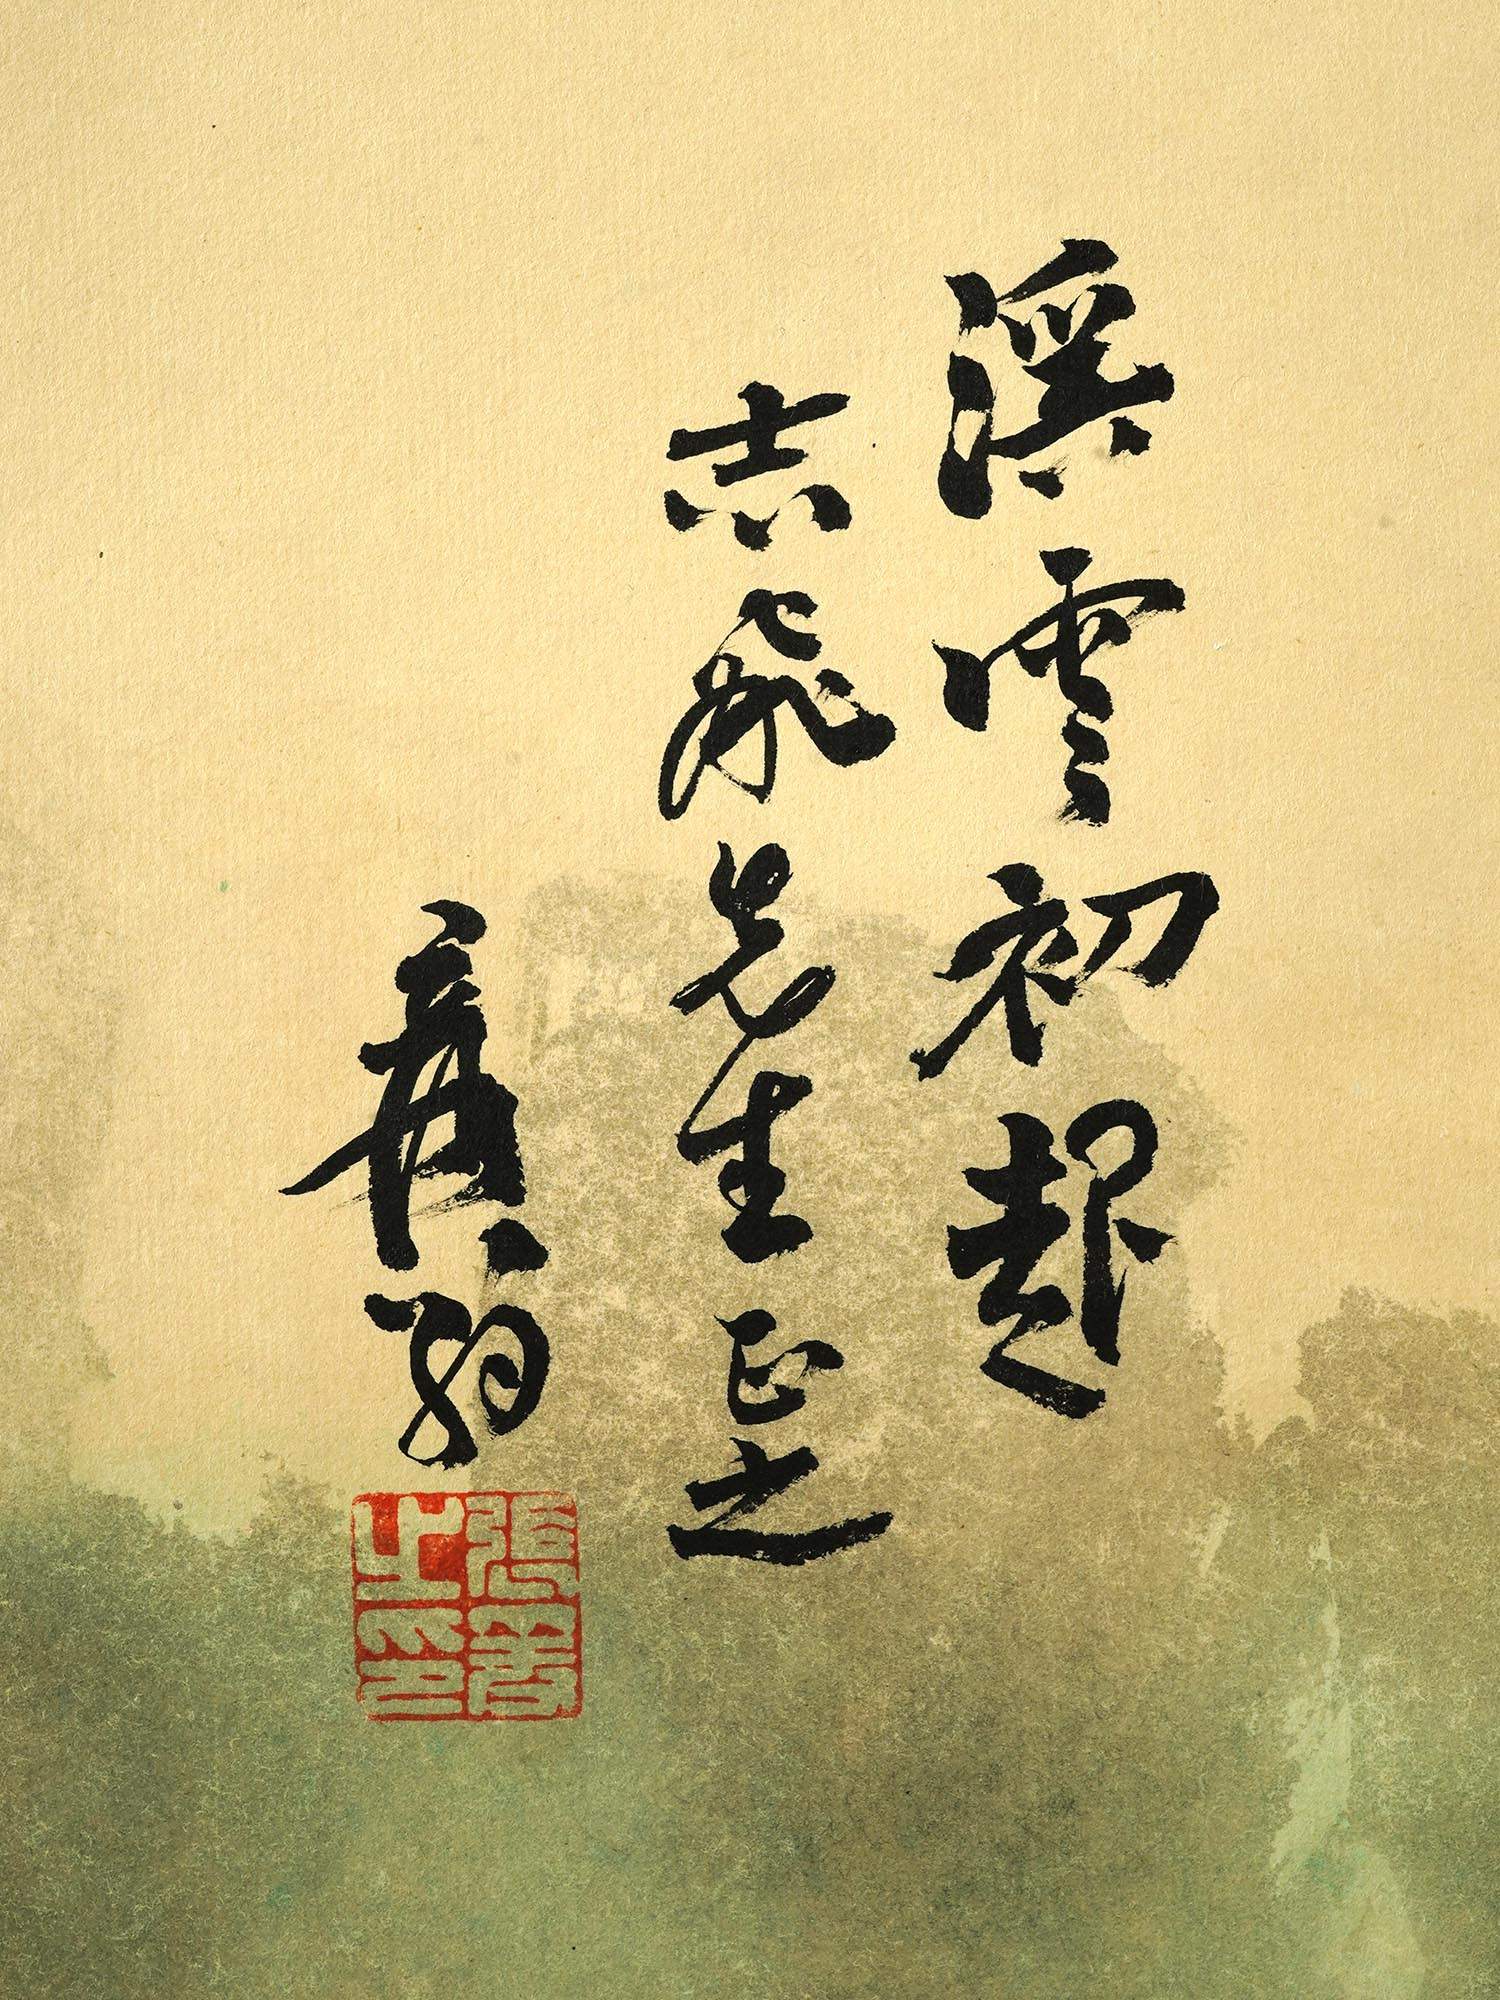 溪雲初起
志飛先生正之
爰翁
張爰之印